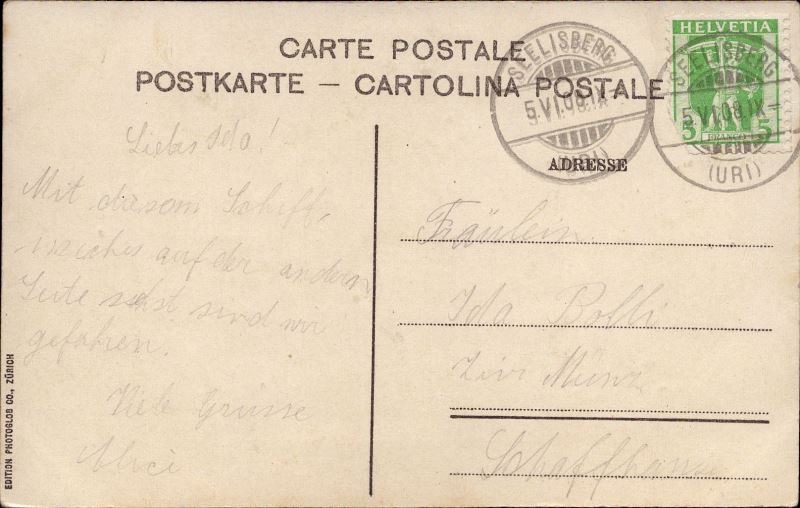 CARTE POSTALE
POSTKARTE — CARTOLINA POSTALE
HELVETIA
5 FRANCO 5
SEELISBERG
5.VI.08.IX—
(URI)
SEELISBERG
5.VI.08.IX—
(URI)
ADRESSE
Liebes Ida!
Mit dasem Schiff,
welches auf der andern
Seite sehst sind wir
gefahren.
Viele Grüsse
Fräulein
Ida Bolli
Münz
Schaffhausen
EDITION PHOTOGLOB CO., ZÜRICH